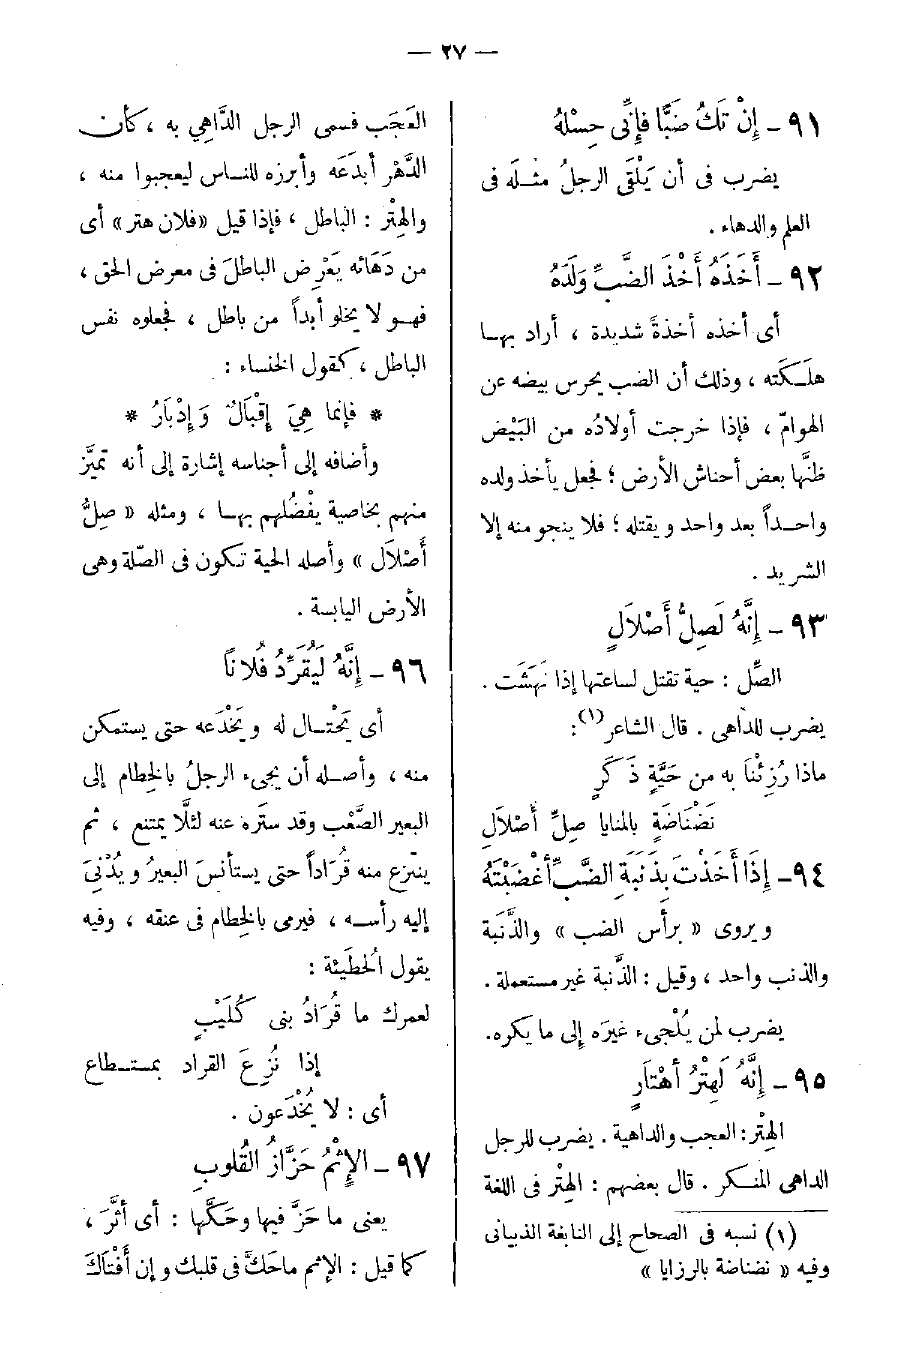 — ٢٧ —
٩١ – إِنْ تَكُ ضَبًّا فَإِنِّى حِسْلُهُ
يضرب فى أن يَلْقَى الرجلُ مثـلَه فى
العلم والدهاء .
٩٢ – أَخَذَهُ أَخْذَ الضَّبِّ وَلَدَهُ
أى أخذه أخذةً شديدة ، أراد بهـا
هَلَـكَتَه ، وذلك أن الضب يحرس بيضه عن
الهوامّ ، فإذا خرجت أولادُه من البَيْض
ظنَّها بعض أحناش الأرض ؛ فجعل يأخذ ولده
واحـداً بعد واحد ويقتله ؛ فلا ينجو منه إلا
الشريد .
٩٣ – إِنَّهُ لَصِلُّ أَصْلَالٍ
الصِّل : حية تقتل لساعتها إذا نَهَشَت .
يضرب للداهى . قال الشاعر (١) :
ماذا رُزِئْنَا به من حَيَّةٍ ذَكَرٍ
نَضْنَاضَةٍ بالمنايا صِلِّ أَصْلَالِ
٩٤ – إِذَا أَخَذْتَ بِذَنَبَةِ الضَّبِّ أَغْضَبْتَهُ
ويروى « برأس الضب » والذَّنَبة
والذنب واحد ، وقيل : الذَّنبة غير مستعملة .
يضرب لمن يُلْجىء غيرَه إلى ما يكره .
٩٥ – إِنَّهُ لَهِتْرُ أَهْتَارٍ
الهِتْر : العجب والداهية . يضرب للرجل
الداهى المنـكر . قال بعضهم : الهِتْر فى اللغة
(١) نسبه فى الصحاح إلى النابغة الذبيانى
وفيه « نضناضة بالرزايا »
العَجَب فسمى الرجل الدَّاهِي به ، كأن
الدَّهْر أبدَعَه وأبرزه للنـاس ليعجبوا منه ،
والهِتْر : الباطل ، فإذا قيل « فلان هتر » أى
من دَهَائه يَعْرِض الباطلَ فى معرض الحق ،
فهـو لا يخلو أبداً من باطل ، فجعلوه نفس
الباطل ، كقول الخنساء :
* فإنما هِيَ إقْبَالٌ وَإِدْبَارُ *
وأضافه إلى أجناسه إشارة إلى أنه تميَّز
منهم بخاصية يفْضُلهم بهـا ، ومثله « صِلُّ
أَصْلَال » وأصله الحية تكون فى الصّلة وهى
الأرض اليابسة .
٩٦ – إِنَّهُ لَيُقَرِّدُ فُلَاناً
أى يَحْتـال له ويَخْدَعه حتى يستمكن
منه ، وأصـله أن يجىء الرجلُ بالخِطام إلى
البعير الصَّعْب وقد ستَره عنه لئلَّا يمتنع ، ثم
ينتزع منه قُرَاداً حتى يستأنسَ البعيرُ ويُدْنِىَ
إليه رأسـه ، فيرمى بالخِطام فى عنقه ، وفيه
يقول الحُطَيئة :
لعمرك ما قُرَادُ بنى كُلَيْبٍ
إذا نُزِعَ القراد بمستـطاع
أى : لا يُخْدَعون .
٩٧ – الإِثْمُ حَزَّازُ القُلُوبِ
يعنى ما حَزَّ فيها وحَكَّها : أى أثَّرَ ،
كما قيل : الإثم ماحَكَّ فى قلبك وإن أَفْتَاكَ